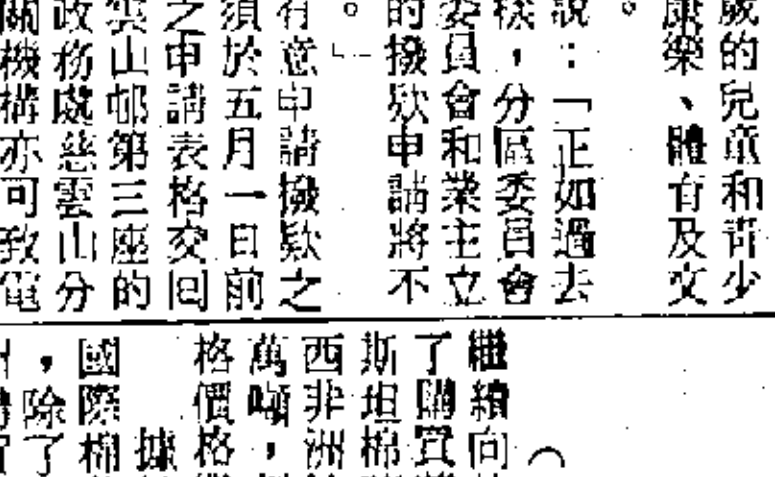 歲的兒童和青少
康樂、體育及文
。
說：「正如過去
樣，分區委員會
委員會和業主立
的撥欵申請將不
。」
有意申請撥欵之
須於五月一日前
之申請表格交回
雲山邨第三座的
政務處慈雲山分
關機構亦可致電
（
繼續向
了購買
斯坦棉
西非洲
萬噸，
格價格
據
國際棉
，除了